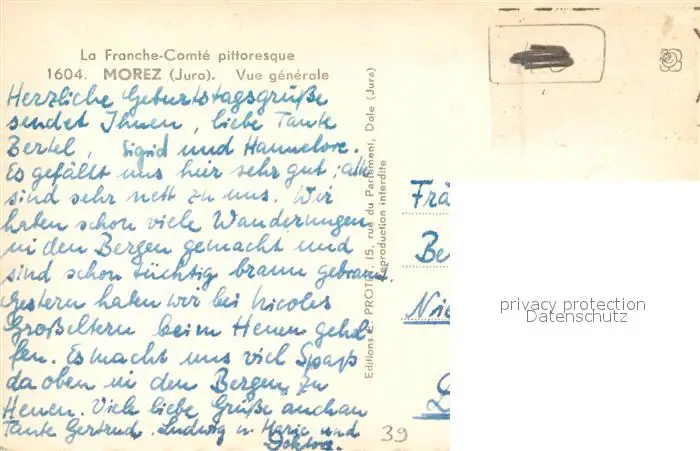 La Franche-Comté pittoresque
1604. MOREZ (Jura). Vue générale
Herzliche Geburtstagsgrüße
sendet Ihnen, liebe Tante
Bertel, Sigrid und Hannelore.
Es gefällt uns hier sehr gut; alle
sind sehr nett zu uns. Wir
haben schon viele Wanderungen
in den Bergen gemacht und
sind schon tüchtig braun gebrannt.
Gestern haben wir bei Nicoles
Großeltern beim Heuen gehol-
fen. Es macht uns viel Spaß
da oben in den Bergen zu
Heuen. Viele liebe Grüße auch an
Tante Gertrud, Ludwig u. Marie und
39
Editions PROTET, 15, rue du Parlement, Dole (Jura)
Reproduction interdite
Frä
Be
Nie
privacy protection
Datenschutz